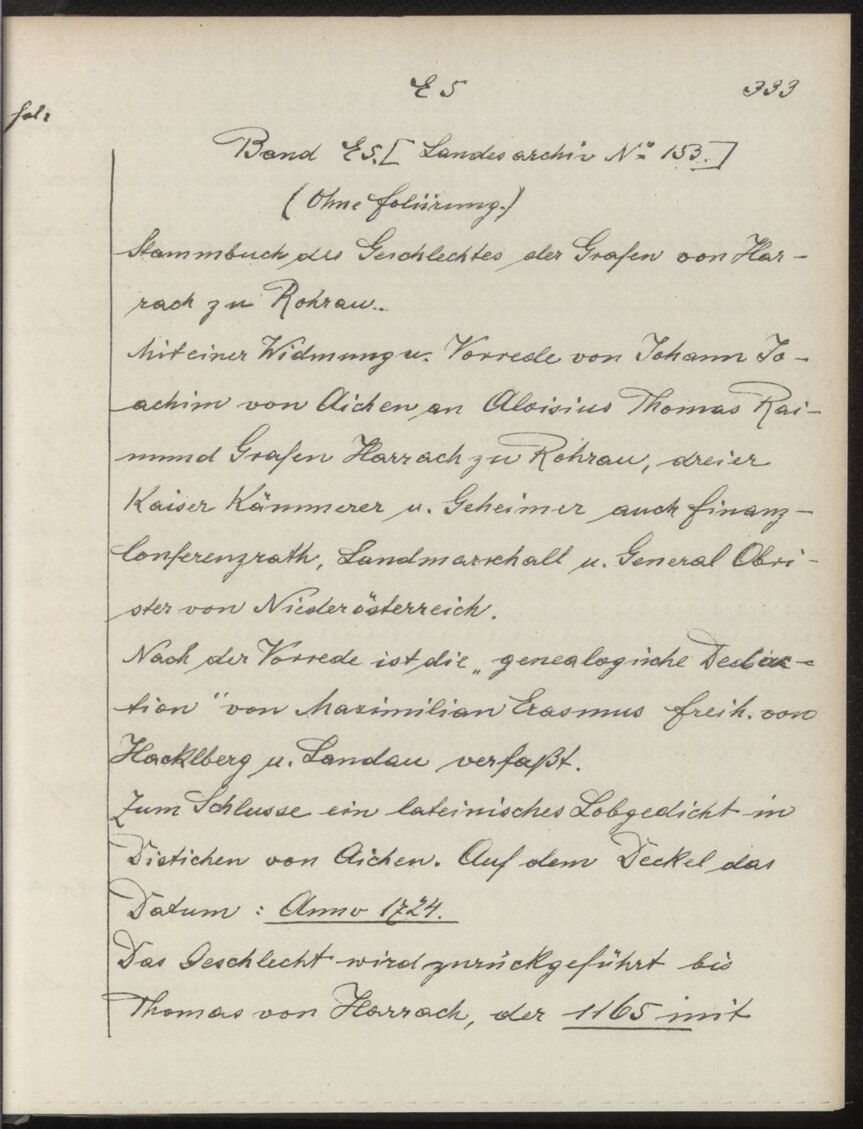 E 5 333
fol:
Band E5. [Landesarchiv No 153.]
(Ohne Foliirung.)
Stammbuch des Geschlechtes der Grafen von Har-
rach zu Rohrau.
Mit einer Widmung u. Vorrede von Johann Jo-
achim von Aichen an Aloisius Thomas Rai-
mund Grafen Harrach zu Rohrau, dreier
Kaiser Kämmerer u. Geheimer auch Finanz-
Conferenzrath, Landmarschall u. General Obri-
ster von Niederösterreich.
Nach der Vorrede ist die „genealogische Deduc-
tion" von Maximilian Erasmus Freih. von
Hacklberg u. Landau verfaßt.
Zum Schlusse ein lateinisches Lobgedicht in
Distichen von Aichen. Auf dem Deckel das
Datum: Anno 1724.
Das Geschlecht wird zurückgeführt bis
Thomas von Harrach, der 1165 mit